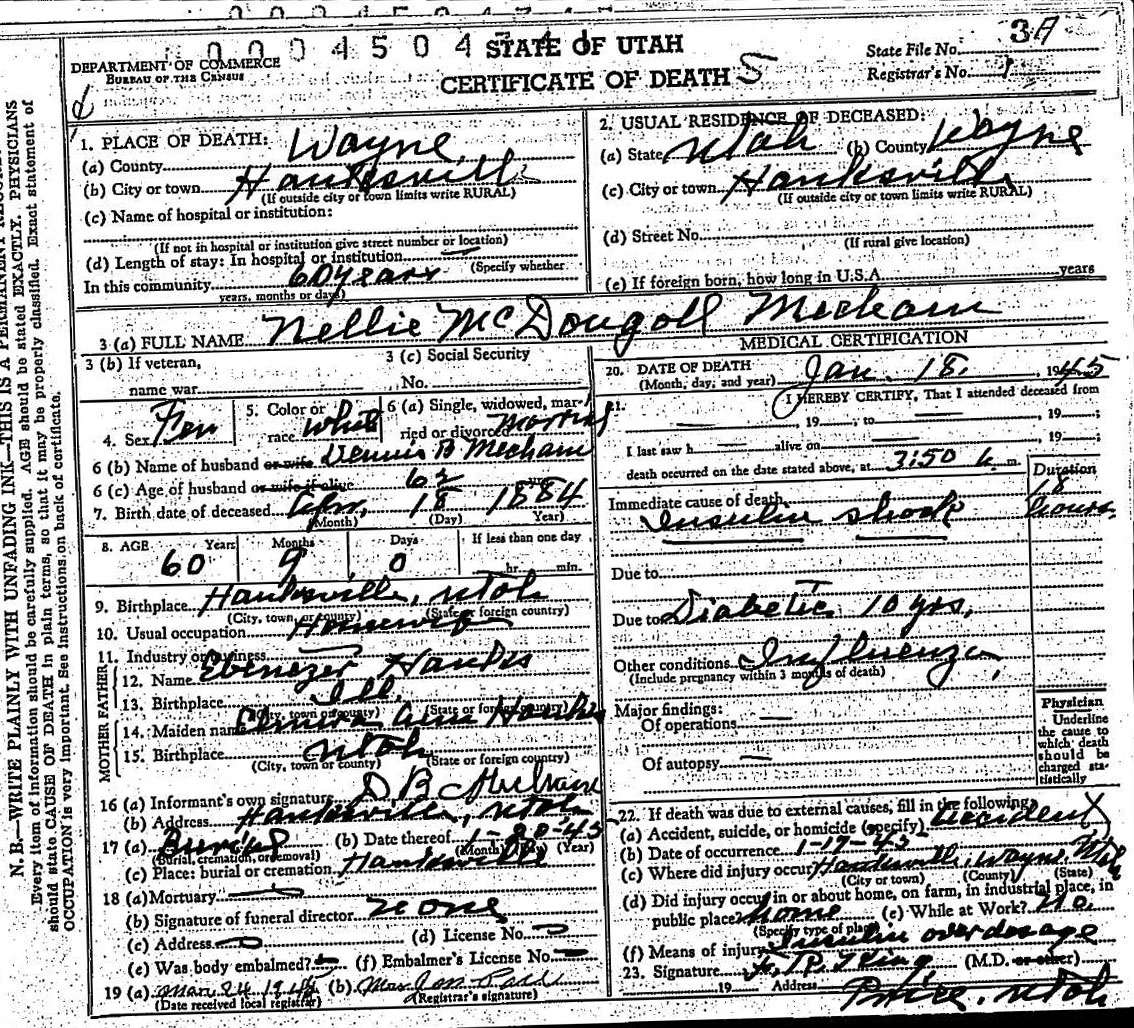 0004504
STATE OF UTAH
CERTIFICATE OF DEATH 5
DEPARTMENT OF COMMERCE
BUREAU OF THE CENSUS
State File No. 3A
Registrar's No. 1
N. B.—WRITE PLAINLY WITH UNFADING INK—THIS IS A PERMANENT
Every item of information should be carefully supplied. AGE should be stated EXACTLY. PHYSICIANS
should state CAUSE OF DEATH in plain terms, so that it may be properly classified. Exact statement of
OCCUPATION is very important. See instructions on back of certificate.
1. PLACE OF DEATH:
(a) County Wayne
(b) City or town Hanksville
(If outside city or town limits write RURAL)
(c) Name of hospital or institution:
(If not in hospital or institution give street number or location)
(d) Length of stay: In hospital or institution
(Specify whether
In this community 60 years
years, months or days)
2. USUAL RESIDENCE OF DECEASED:
(a) State Utah (b) County Wayne
(c) City or town Hanksville
(If outside city or town limits write RURAL)
(d) Street No.
(If rural give location)
(e) If foreign born, how long in U.S.A. years
3 (a) FULL NAME Nellie McDougoll Mecham
3 (b) If veteran,
name war
3 (c) Social Security
No.
4. Sex Fem
5. Color or
race White
6 (a) Single, widowed, mar-
ried or divorced Married
6 (b) Name of husband or wife Dennis B Mecham
6 (c) Age of husband or wife if alive 62
7. Birth date of deceased Apr. 18 1884
(Month) (Day) Year)
8. AGE Years Months Days If less than one day
60 9 0 hr. min.
9. Birthplace Hanksville, Utah
(City, town, or county) (State or foreign country)
10. Usual occupation Housewife
11. Industry or business
FATHER
12. Name Ebenezer Hanks
13. Birthplace Ill.
(City, town or county) (State or foreign country)
MOTHER
14. Maiden name Ann Hanks
15. Birthplace Utah
(City, town or county) (State or foreign country)
16 (a) Informant's own signature D B Mecham
(b) Address Hanksville, Utah
17 (a) Burial (b) Date thereof 1-20-45
(Burial, cremation, or removal) (Month) (Day) (Year)
(c) Place: burial or cremation Hanksville
18 (a) Mortuary
(b) Signature of funeral director none
(c) Address (d) License No.
(e) Was body embalmed? (f) Embalmer's License No.
19 (a) Mar 24 1945 (b) Mrs.
(Date received local registrar) (Registrar's signature)
MEDICAL CERTIFICATION
20. DATE OF DEATH
(Month, day, and year) Jan. 18, 1945
21. I HEREBY CERTIFY, That I attended deceased from
, 19 ; to , 19 ;
I last saw h alive on , 19 ;
death occurred on the date stated above, at 3:50 m.
Duration
Immediate cause of death 18
Insulin shock hours
Due to
Due to Diabetic 10 yrs.
Other conditions Influenza
(Include pregnancy within 3 months of death)
Major findings:
Of operations
Of autopsy
Physician
Underline
the cause to
which death
should be
charged sta-
tistically
22. If death was due to external causes, fill in the following:
(a) Accident, suicide, or homicide (specify) Accident
(b) Date of occurrence 1-17-45
(c) Where did injury occur Hanksville, Wayne, Utah
(City or town) (County) (State)
(d) Did injury occur in or about home, on farm, in industrial place, in
public place? home (e) While at Work? no.
(Specify type of place)
(f) Means of injury Insulin over dosage
23. Signature King, (M.D. or other)
19 Address Price, Utah